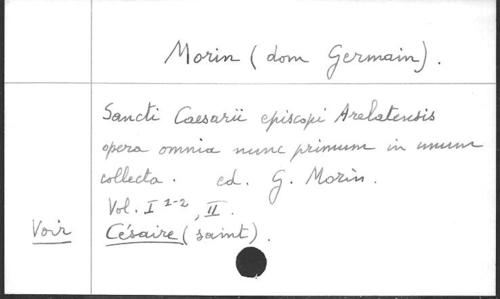 Morin (dom Germain).
Sancti Caesarii episcopi Arelatensis
opera omnia nunc primum in unum
collecta. ed. G. Morin.
Vol. I 1-2, II.
Voir Césaire (saint).